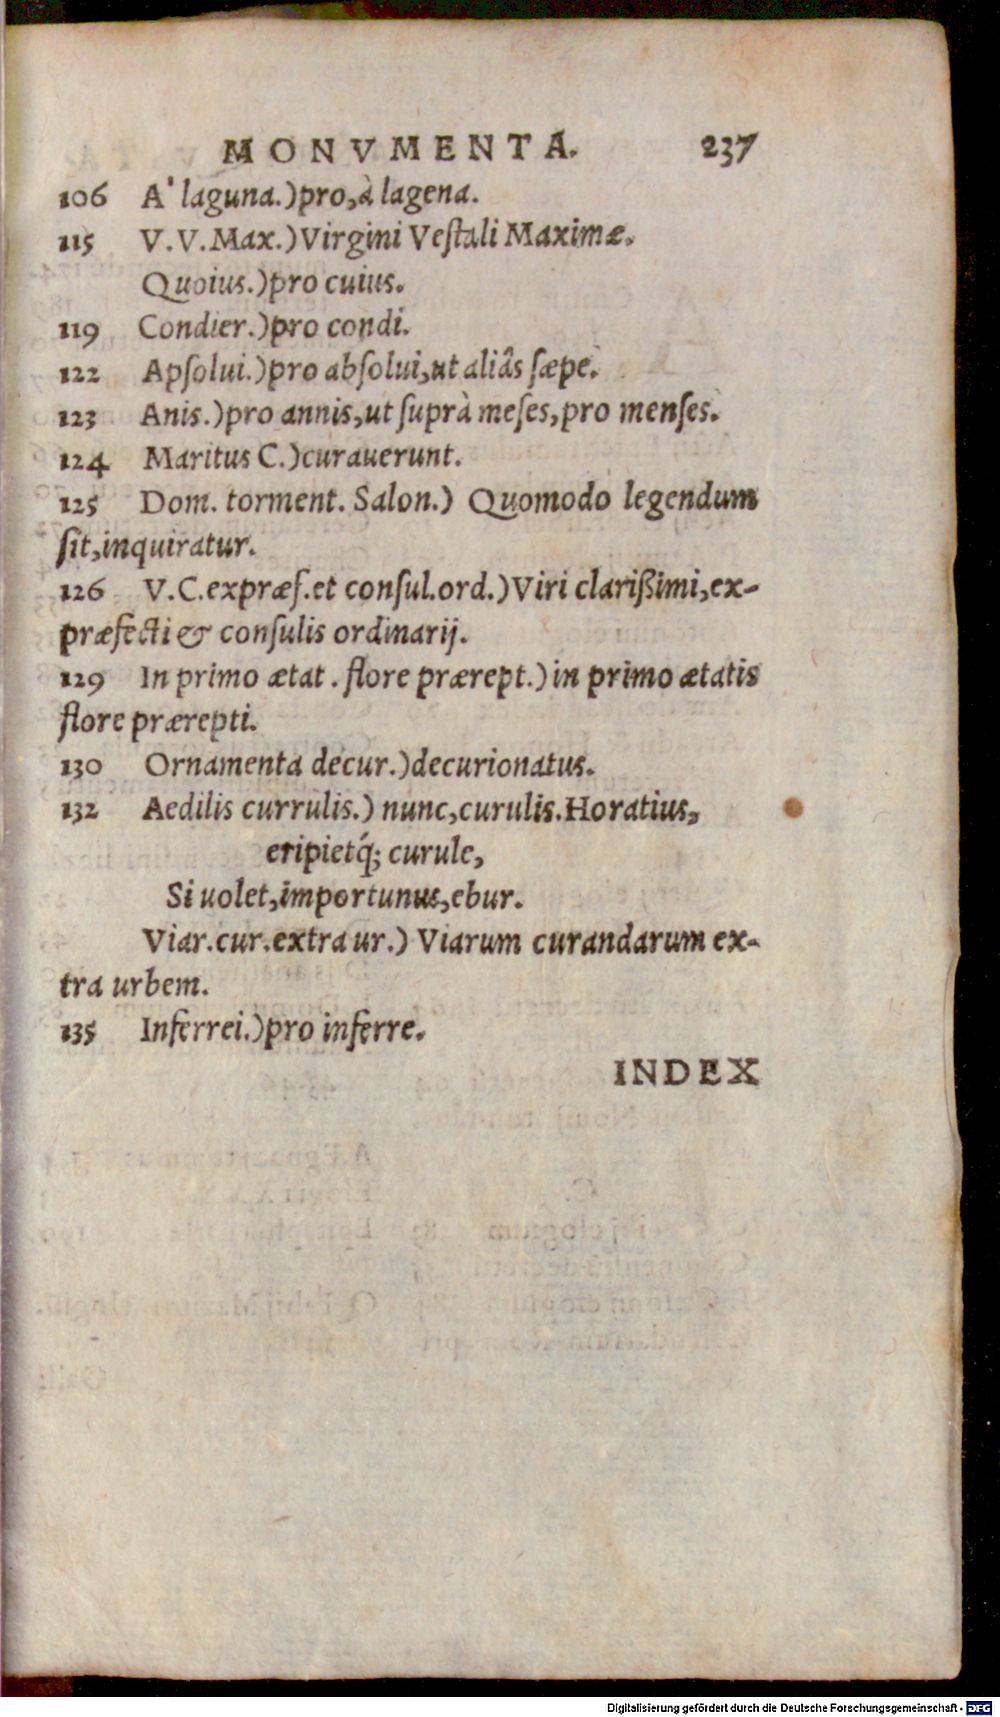 MONVMENTA. 237
106 A' laguna.)pro,à lagena.
115 V.V.Max.)Virgini Veſtali Maximæ.
Quoius.)pro cuius.
119 Condier.)pro condi.
122 Apſolui.)pro abſolui,ut aliâs ſæpe.
123 Anis.)pro annis,ut ſuprà meſes,pro menſes.
124 Maritus C.)curauerunt.
125 Dom. torment. Salon.) Quomodo legendum
ſit,inquiratur.
126 V.C.expræf.et conſul.ord.)Viri clarißimi,ex-
præfecti & conſulis ordinarij.
129 In primo ætat. flore prærept.)in primo ætatis
flore prærepti.
130 Ornamenta decur.)decurionatus.
132 Aedilis currulis.) nunc,curulis.Horatius,
eripietq́; curule,
Si uolet,importunus,ebur.
Viar.cur.extra ur.) Viarum curandarum ex-
tra urbem.
135 Inferrei.)pro inferre.
INDEX
Digitalisierung gefördert durch die Deutsche Forschungsgemeinschaft - DFG